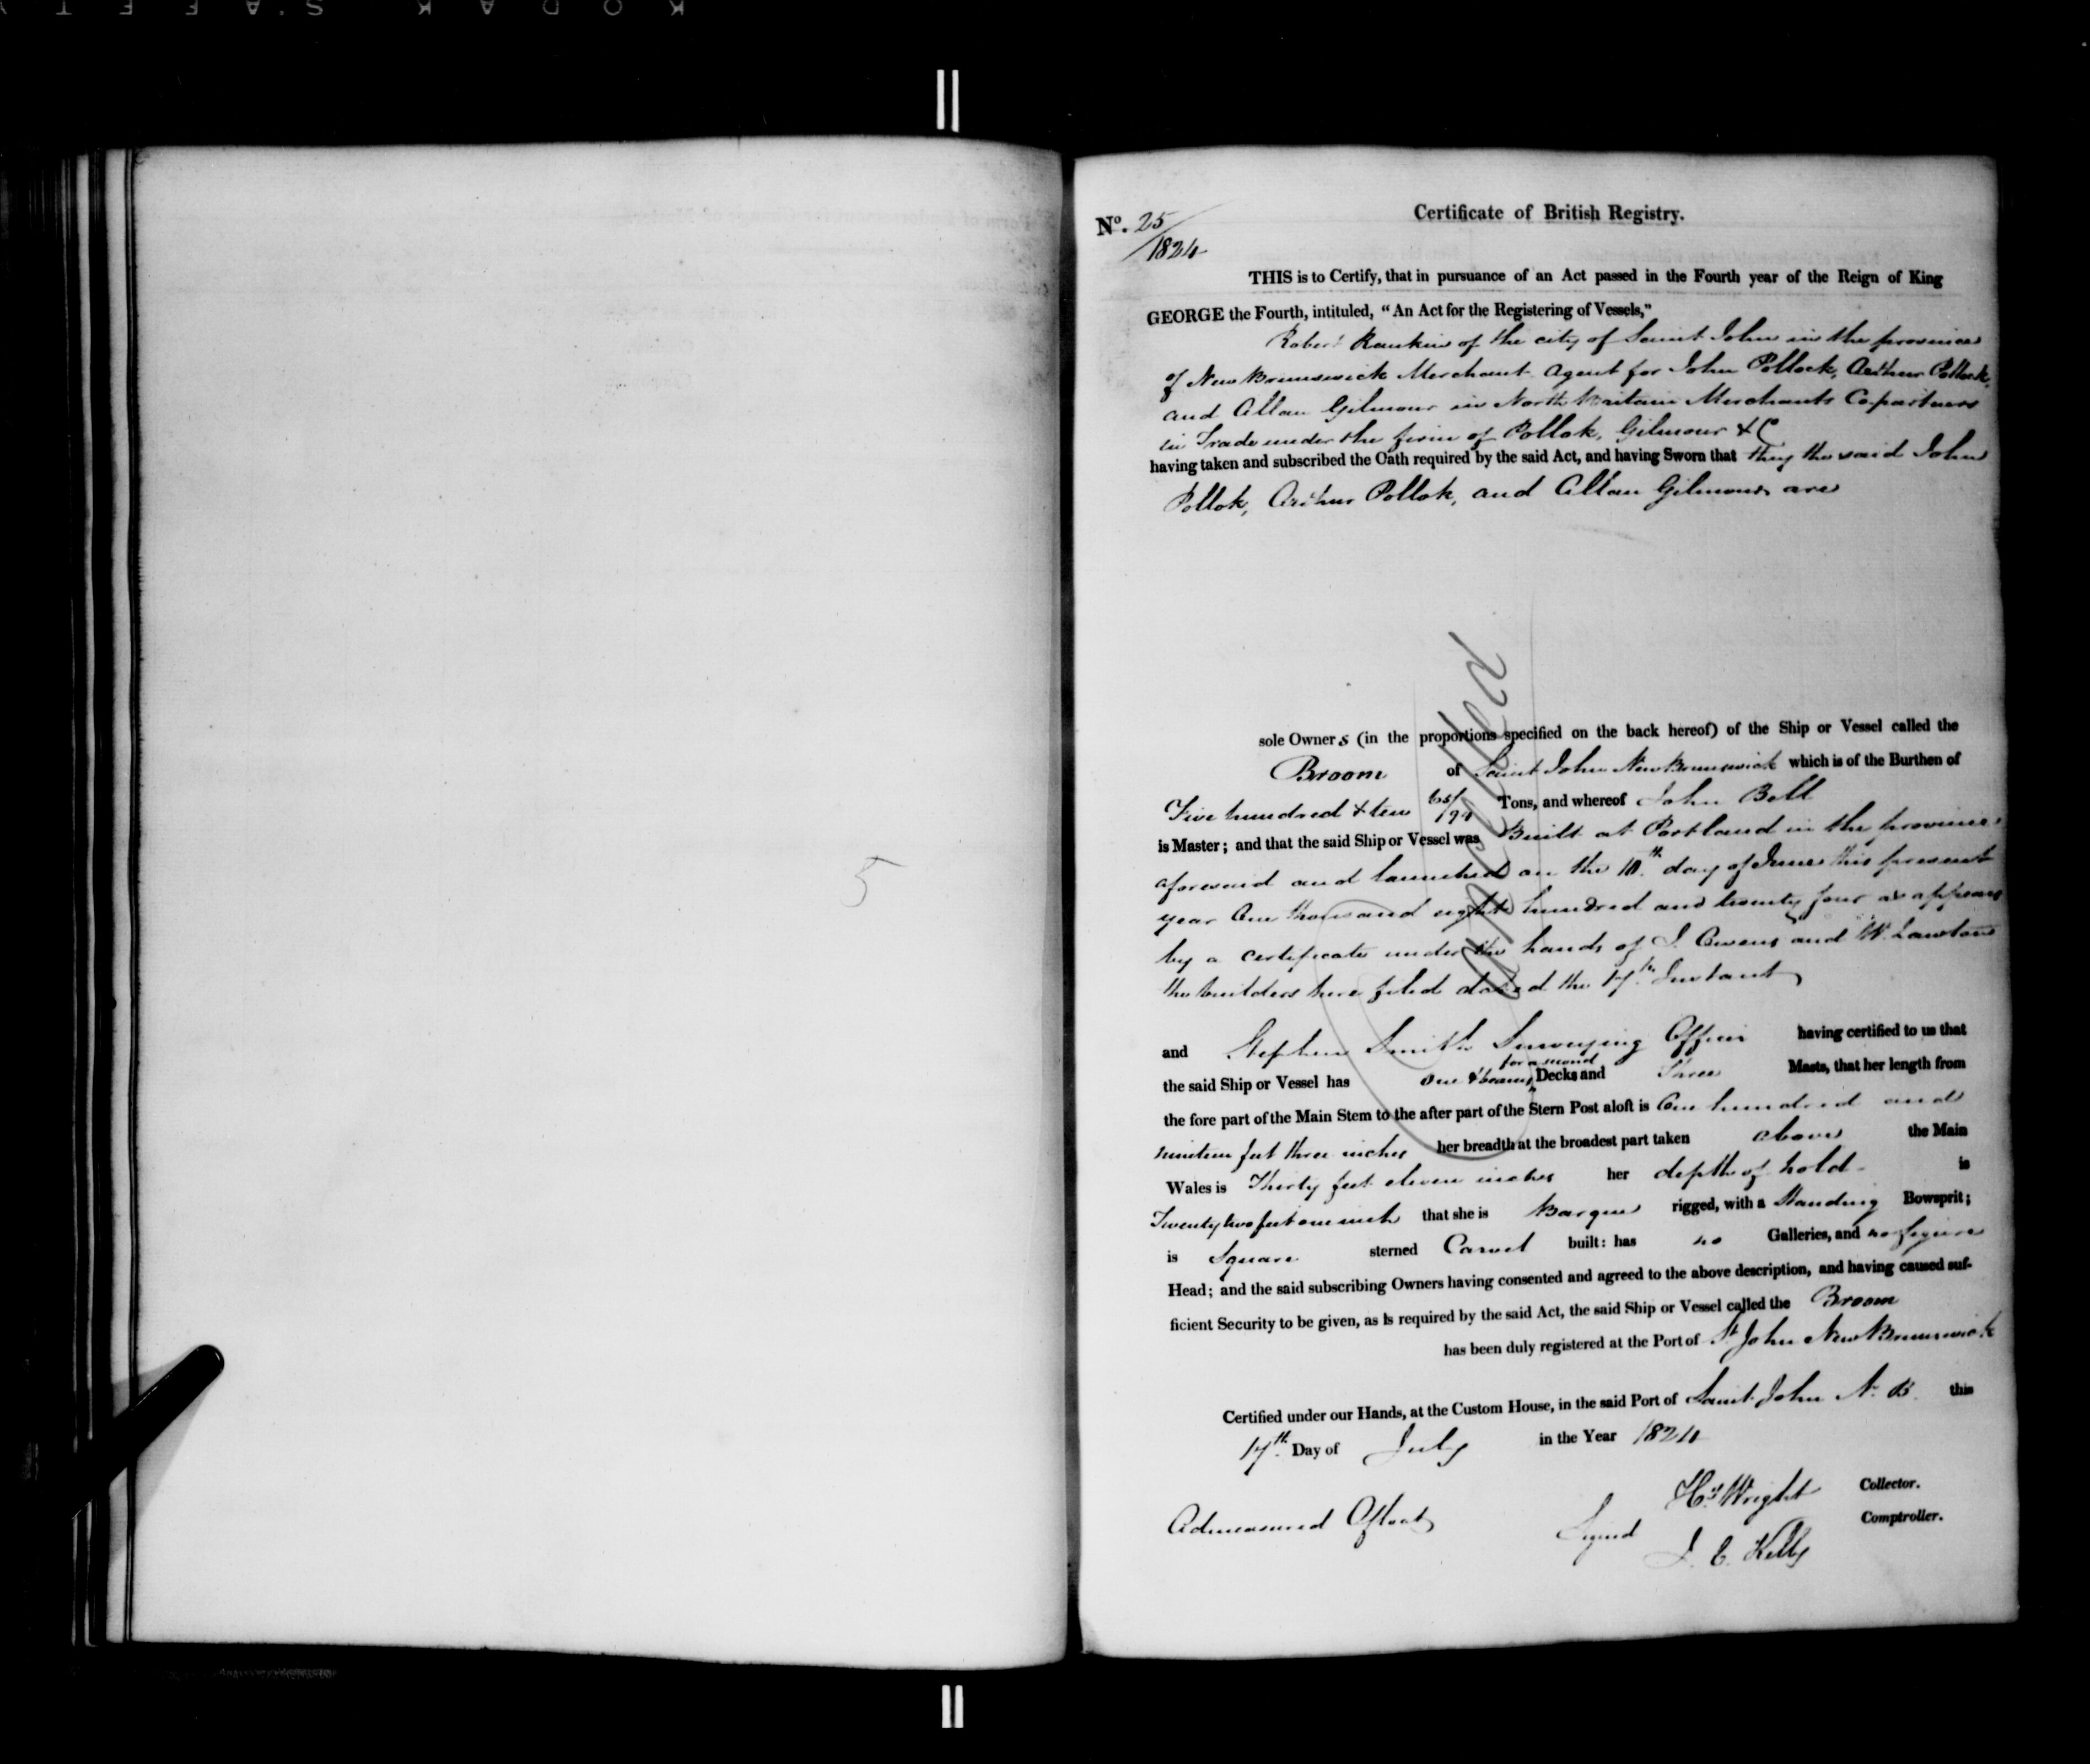 KODAK SAFETY
Certificate of British Registry.
No. 25/1824
THIS is to Certify, that in pursuance of an Act passed in the Fourth year of the Reign of King
GEORGE the Fourth, intituled, "An Act for the Registering of Vessels,"
Robert Rankin of the city of Saint John in the province
of New Brunswick Merchant Agent for John Pollock, Arthur Pollock,
and Allan Gilmour in North Britain Merchants Copartners
in Trade under the firm of Pollok, Gilmour & Co
having taken and subscribed the Oath required by the said Act, and having Sworn that they the said John
Pollok, Arthur Pollok, and Allan Gilmour are
sole Owners (in the proportions specified on the back hereof) of the Ship or Vessel called the
Broom of Saint John New Brunswick which is of the Burthen of
Five hundred & ten 65/94 Tons, and whereof John Bell
is Master; and that the said Ship or Vessel was Built at Portland in the province
aforesaid and launched on the 10th day of June this present
year One thousand eight hundred and twenty four as appears
by a certificate under the hands of J. Owens and W. Lawton
the builders here filed dated the 17th Instant
and Stephen Smith Surveying Officer having certified to us that
the said Ship or Vessel has one & beams for a second Decks and Three Masts, that her length from
the fore part of the Main Stem to the after part of the Stern Post aloft is One hundred and
nineteen feet three inches her breadth at the broadest part taken above the Main
Wales is Thirty feet eleven inches her depth of hold is
Twenty two feet one inch that she is Barque rigged, with a Standing Bowsprit;
is Square sterned Carvel built: has no Galleries, and no figure
Head; and the said subscribing Owners having consented and agreed to the above description, and having caused suf-
ficient Security to be given, as is required by the said Act, the said Ship or Vessel called the Broom
has been duly registered at the Port of St John New Brunswick
Certified under our Hands, at the Custom House, in the said Port of Saint John N. B. this
17th Day of July in the Year 1824
Hy Wright Collector.
Admeasured Afloat Signed Comptroller.
J. C. Kelly
Cancelled
5